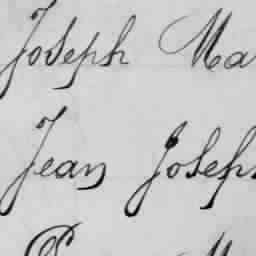 Joseph Ma
Jean Joseph